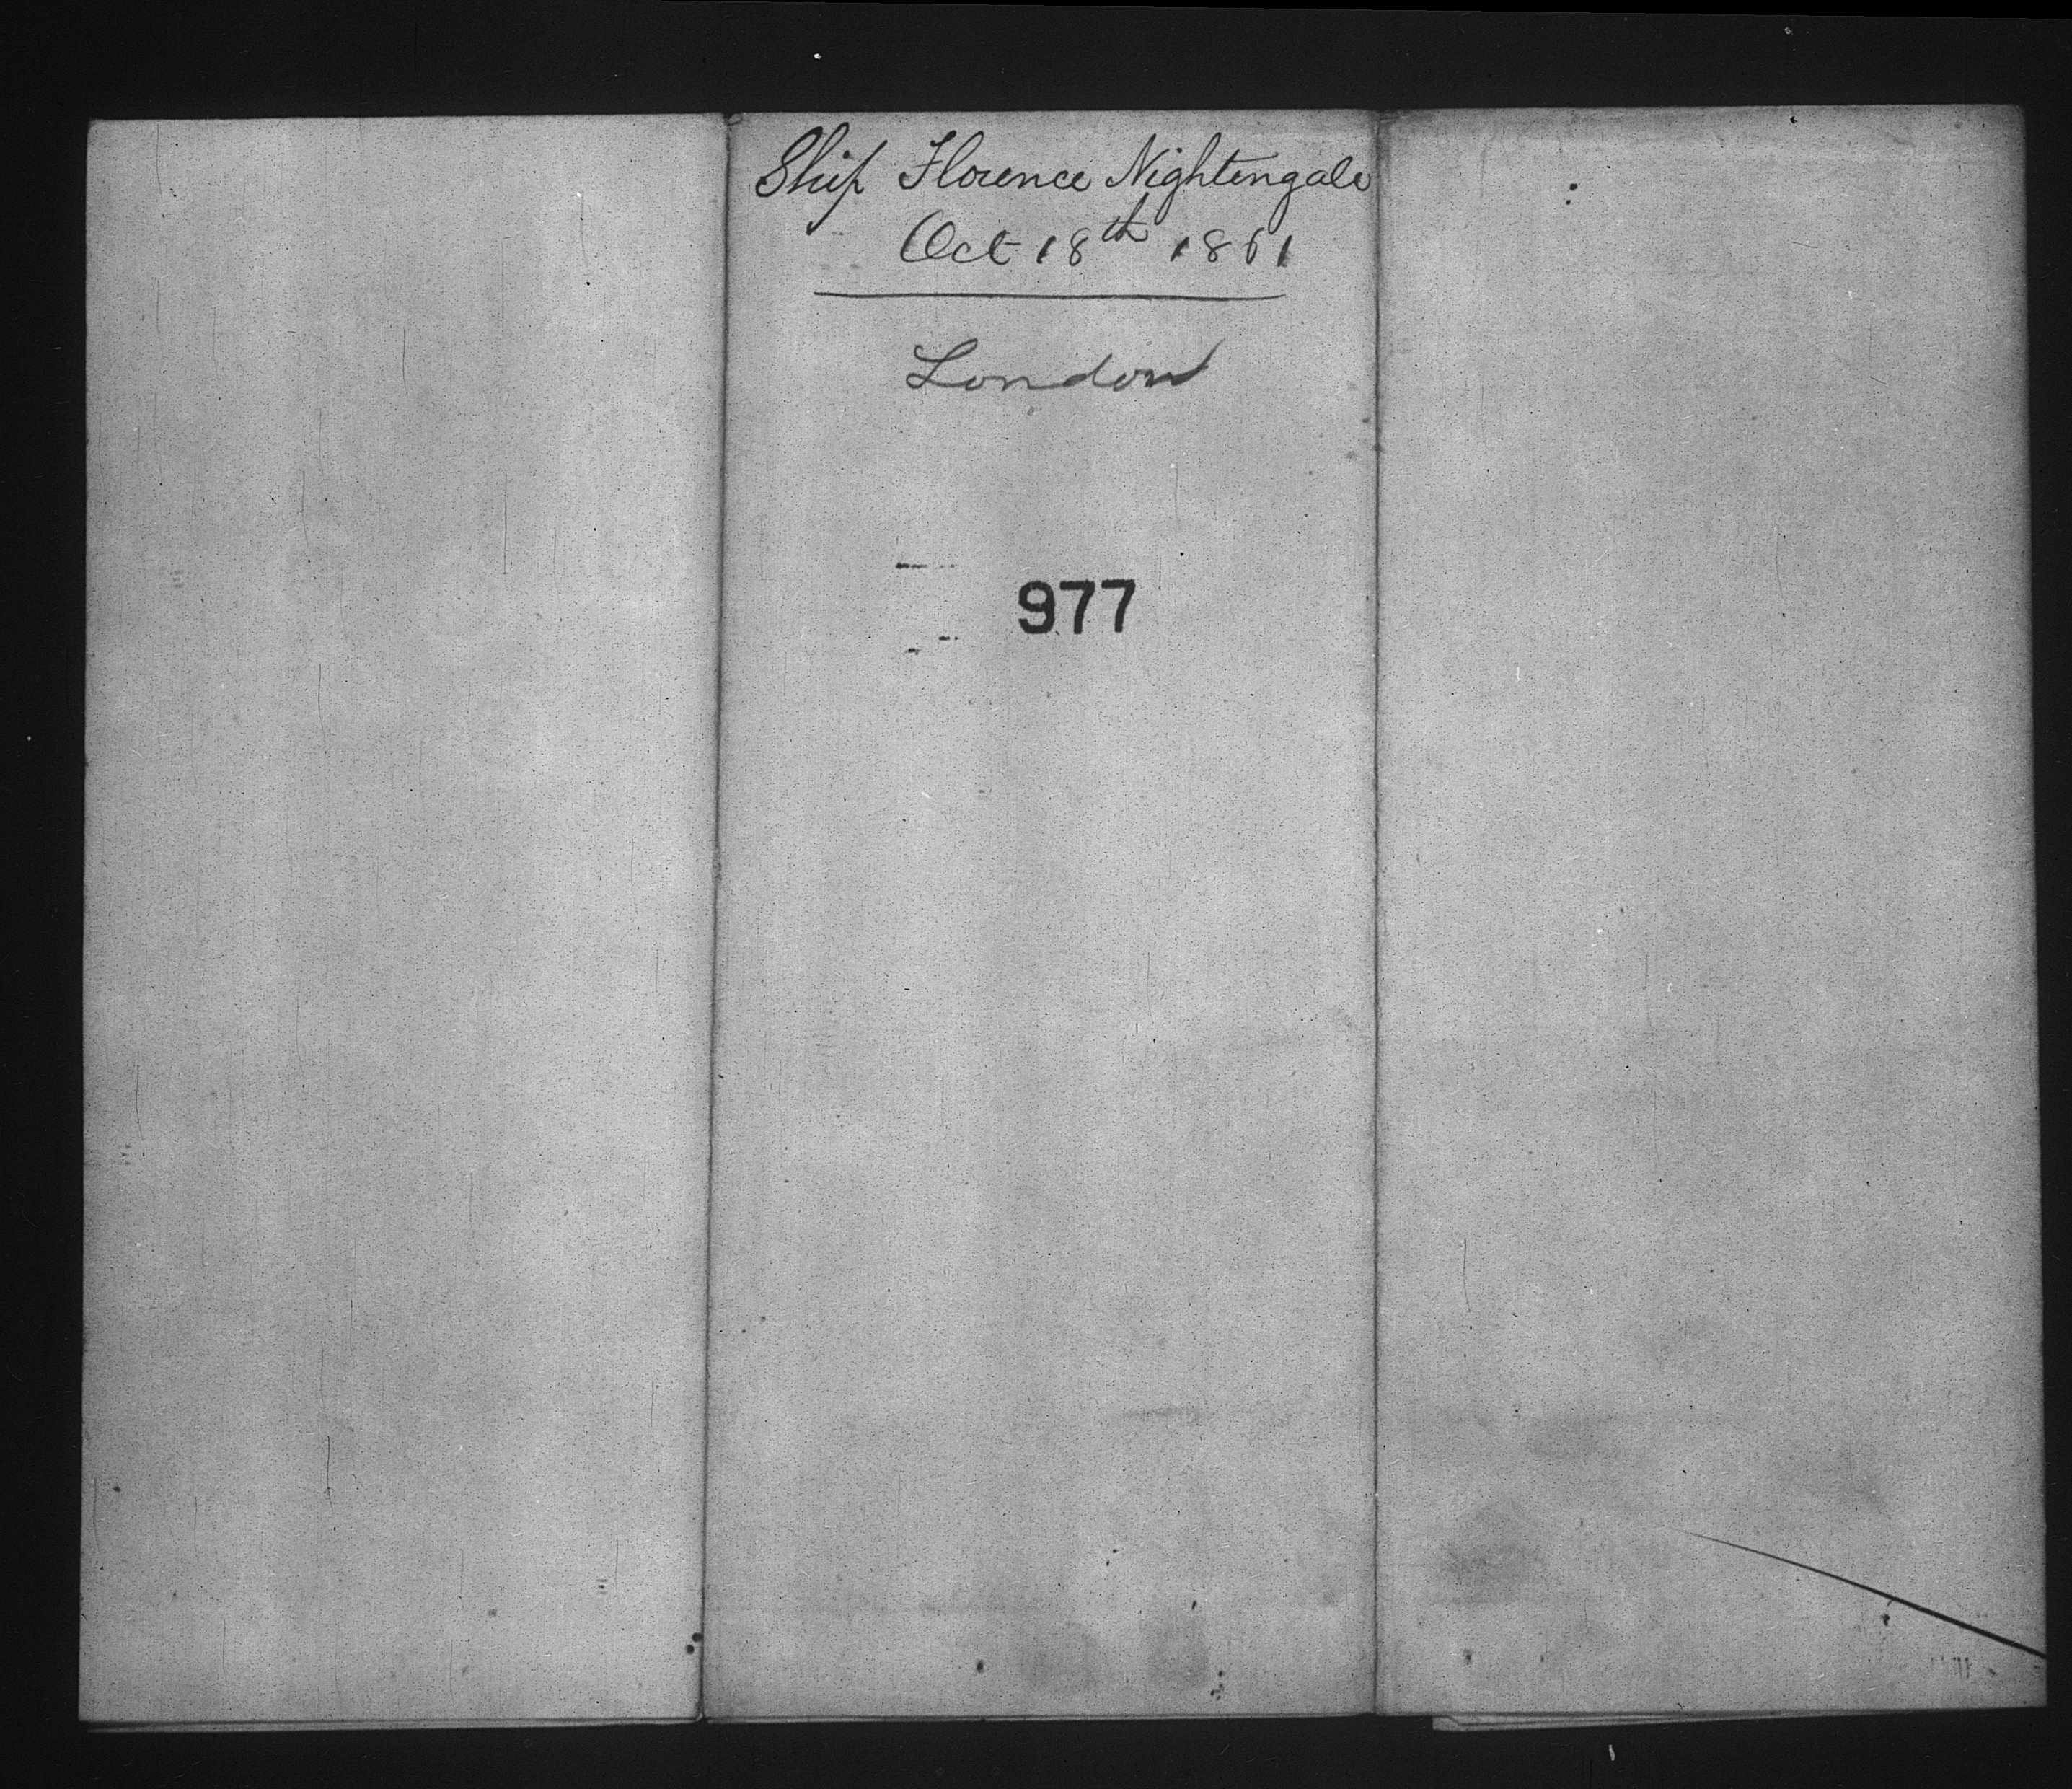 Ship Florence Nightengale
Oct 18th 1861
London
977